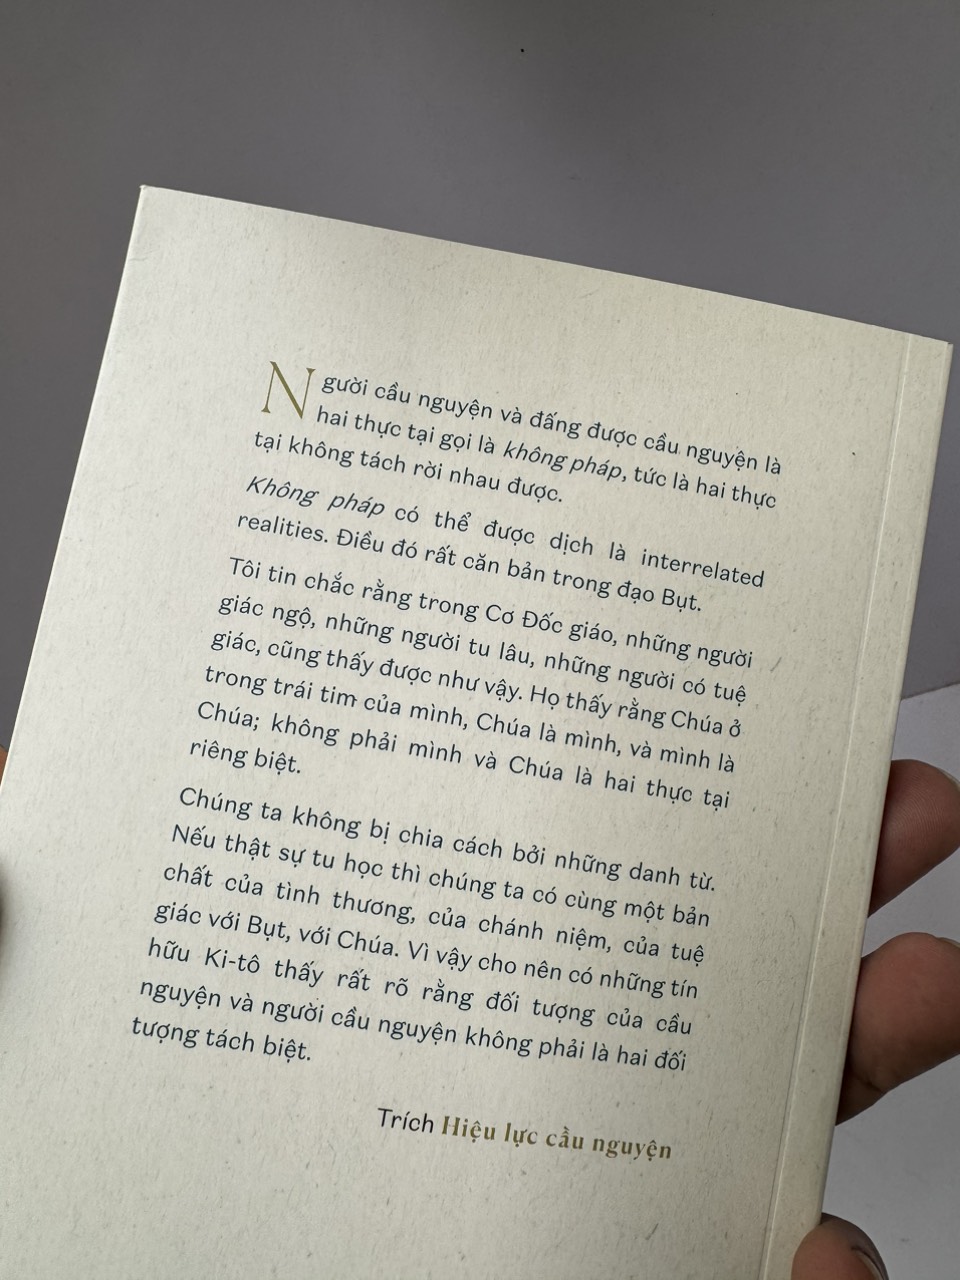 Người cầu nguyện và đấng được cầu nguyện là
hai thực tại gọi là không pháp, tức là hai thực
tại không tách rời nhau được.
Không pháp có thể được dịch là interrelated
realities. Điều đó rất căn bản trong đạo Bụt.
Tôi tin chắc rằng trong Cơ Đốc giáo, những người
giác ngộ, những người tu lâu, những người có tuệ
giác, cũng thấy được như vậy. Họ thấy rằng Chúa ở
trong trái tim của mình, Chúa là mình, và mình là
Chúa; không phải mình và Chúa là hai thực tại
riêng biệt.
Chúng ta không bị chia cách bởi những danh từ.
Nếu thật sự tu học thì chúng ta có cùng một bản
chất của tình thương, của chánh niệm, của tuệ
giác với Bụt, với Chúa. Vì vậy cho nên có những tín
hữu Ki-tô thấy rất rõ rằng đối tượng của cầu
nguyện và người cầu nguyện không phải là hai đối
tượng tách biệt.
Trích Hiệu lực cầu nguyện